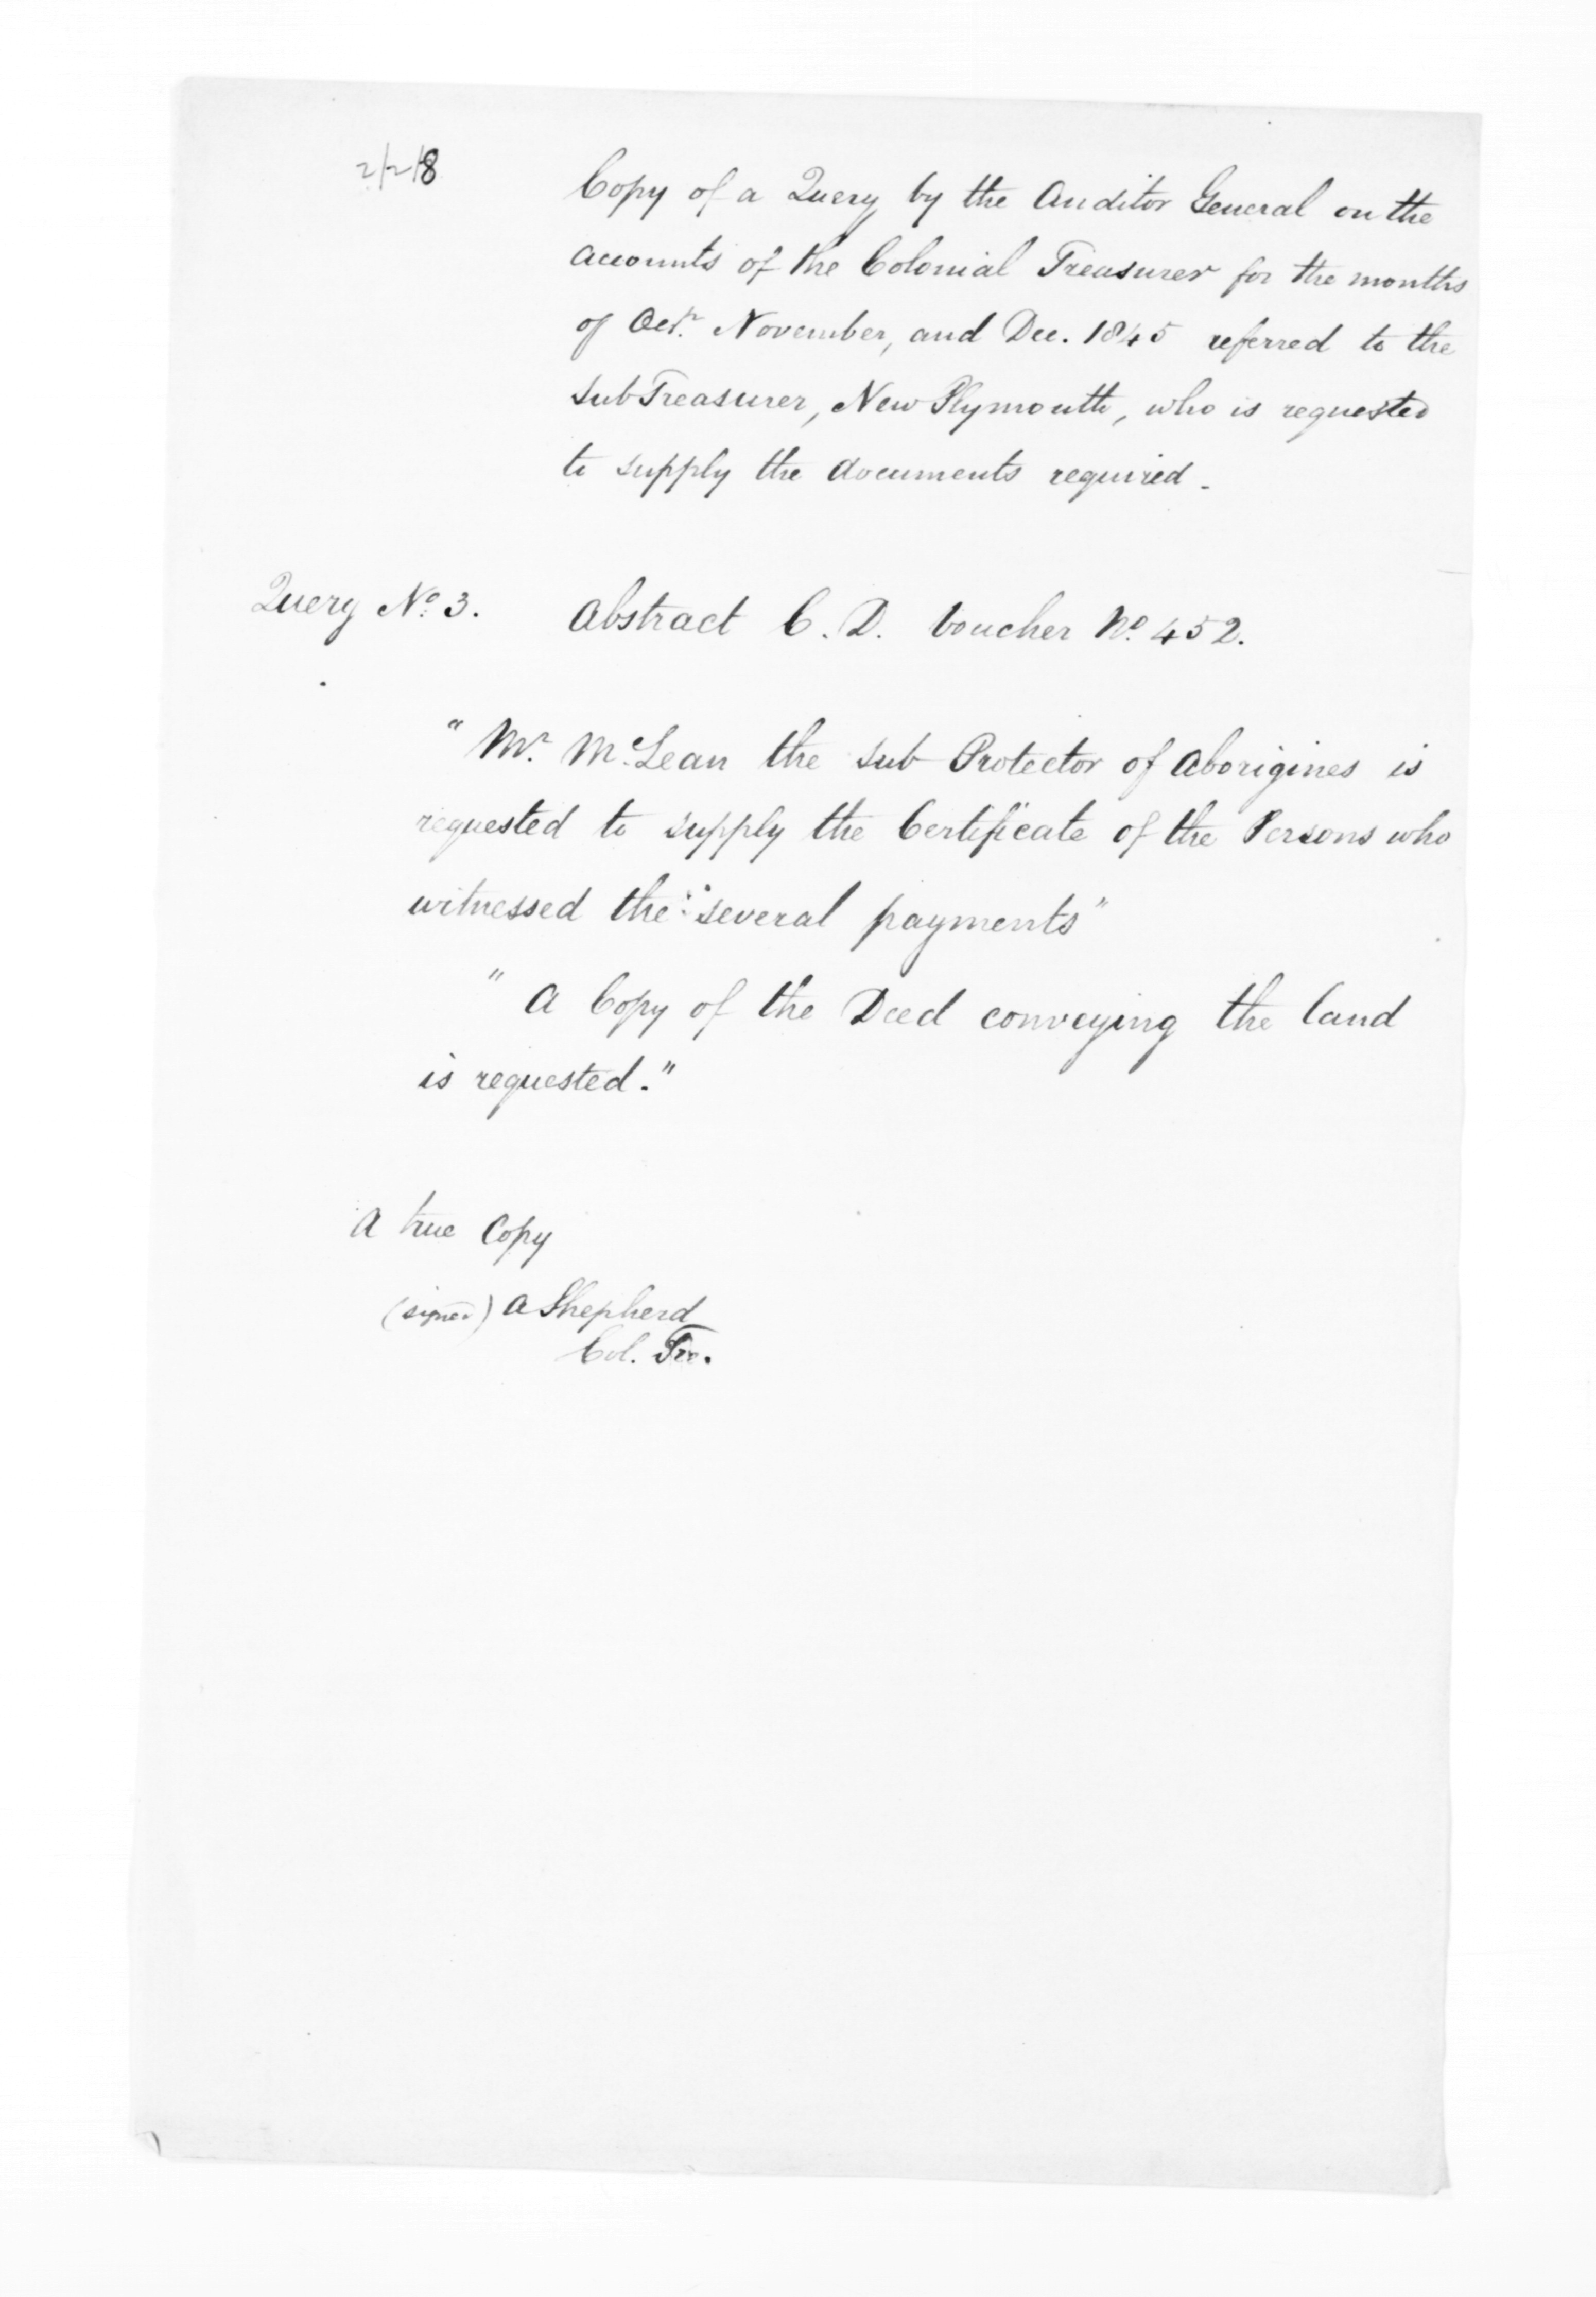 2/218
Copy of a Query by the Auditor General on the
accounts of the Colonial Treasurer for the months
of Octr. November, and Dec. 1845 referred to the
Sub Treasurer, New Plymouth, who is requested
to supply the documents required -
Query No. 3. Abstract C. D. Voucher No. 452.
" Mr. McLean the Sub Protector of Aborigines is
requested to supply the Certificate of the Persons who
witnessed the "several payments"
" A Copy of the Deed conveying the land
is requested."
A true Copy
(signed) A Shepherd
Col. Tre.